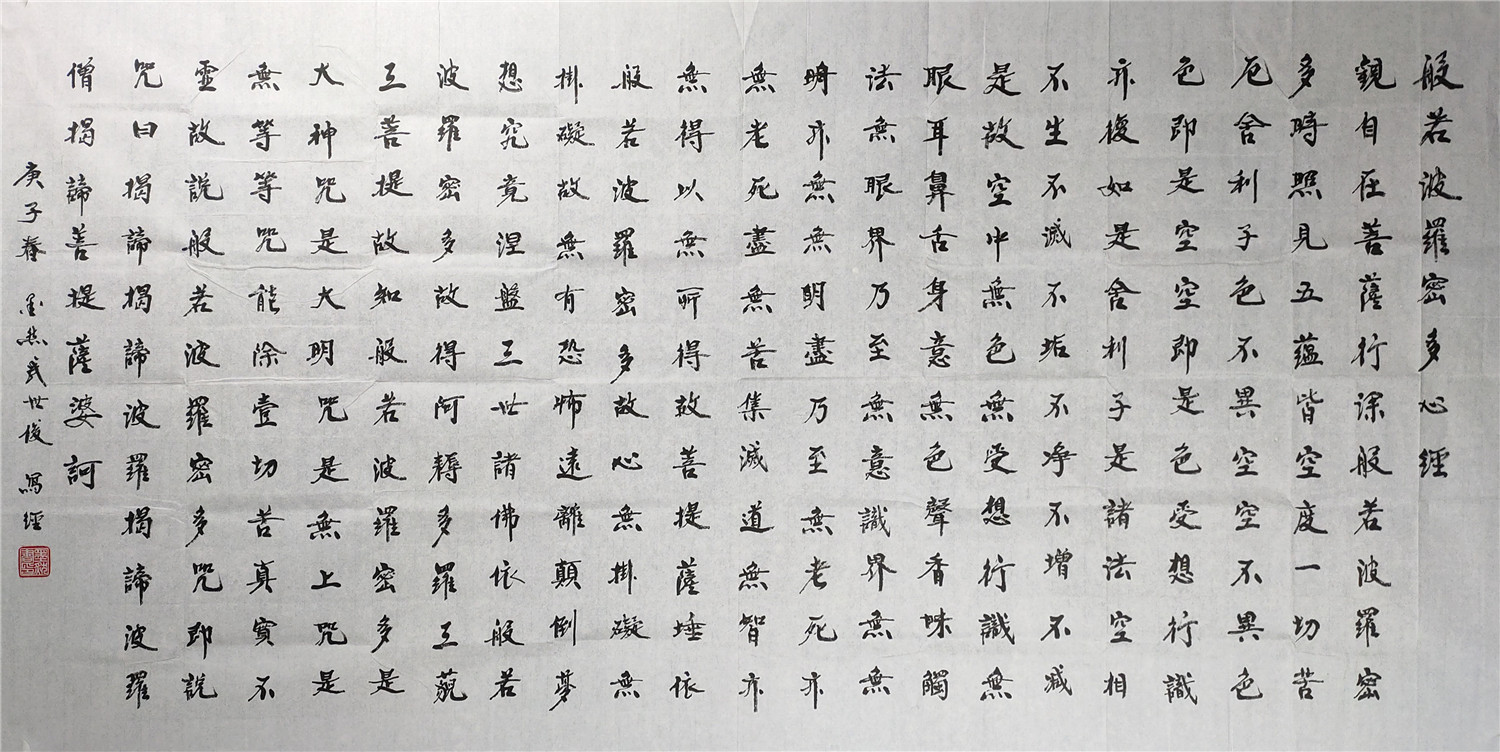 般若波羅密多心經
觀自在菩薩行深般若波羅密
多時照見五蘊皆空度一切苦
厄舍利子色不異空空不異色
色即是空空即是色受想行識
亦復如是舍利子是諸法空相
不生不滅不垢不净不增不減
是故空中無色無受想行識無
眼耳鼻舌身意無色聲香味觸
法無眼界乃至無意識界無無
明亦無無明盡乃至無老死亦
無老死盡無苦集滅道無智亦
無得以無所得故菩提薩埵依
般若波羅密多故心無掛礙無
掛礙故無有恐怖遠離顛倒夢
想究竟涅盤三世諸佛依般若
波羅密多故得阿耨多羅三藐
三菩提故知般若波羅密多是
大神咒是大明咒是無上咒是
無等等咒能除壹切苦真實不
虛故說般若波羅密多咒即說
咒曰揭諦揭諦波羅揭諦波羅
僧揭諦菩提薩婆訶
庚子春 墨然武世俊 寫經